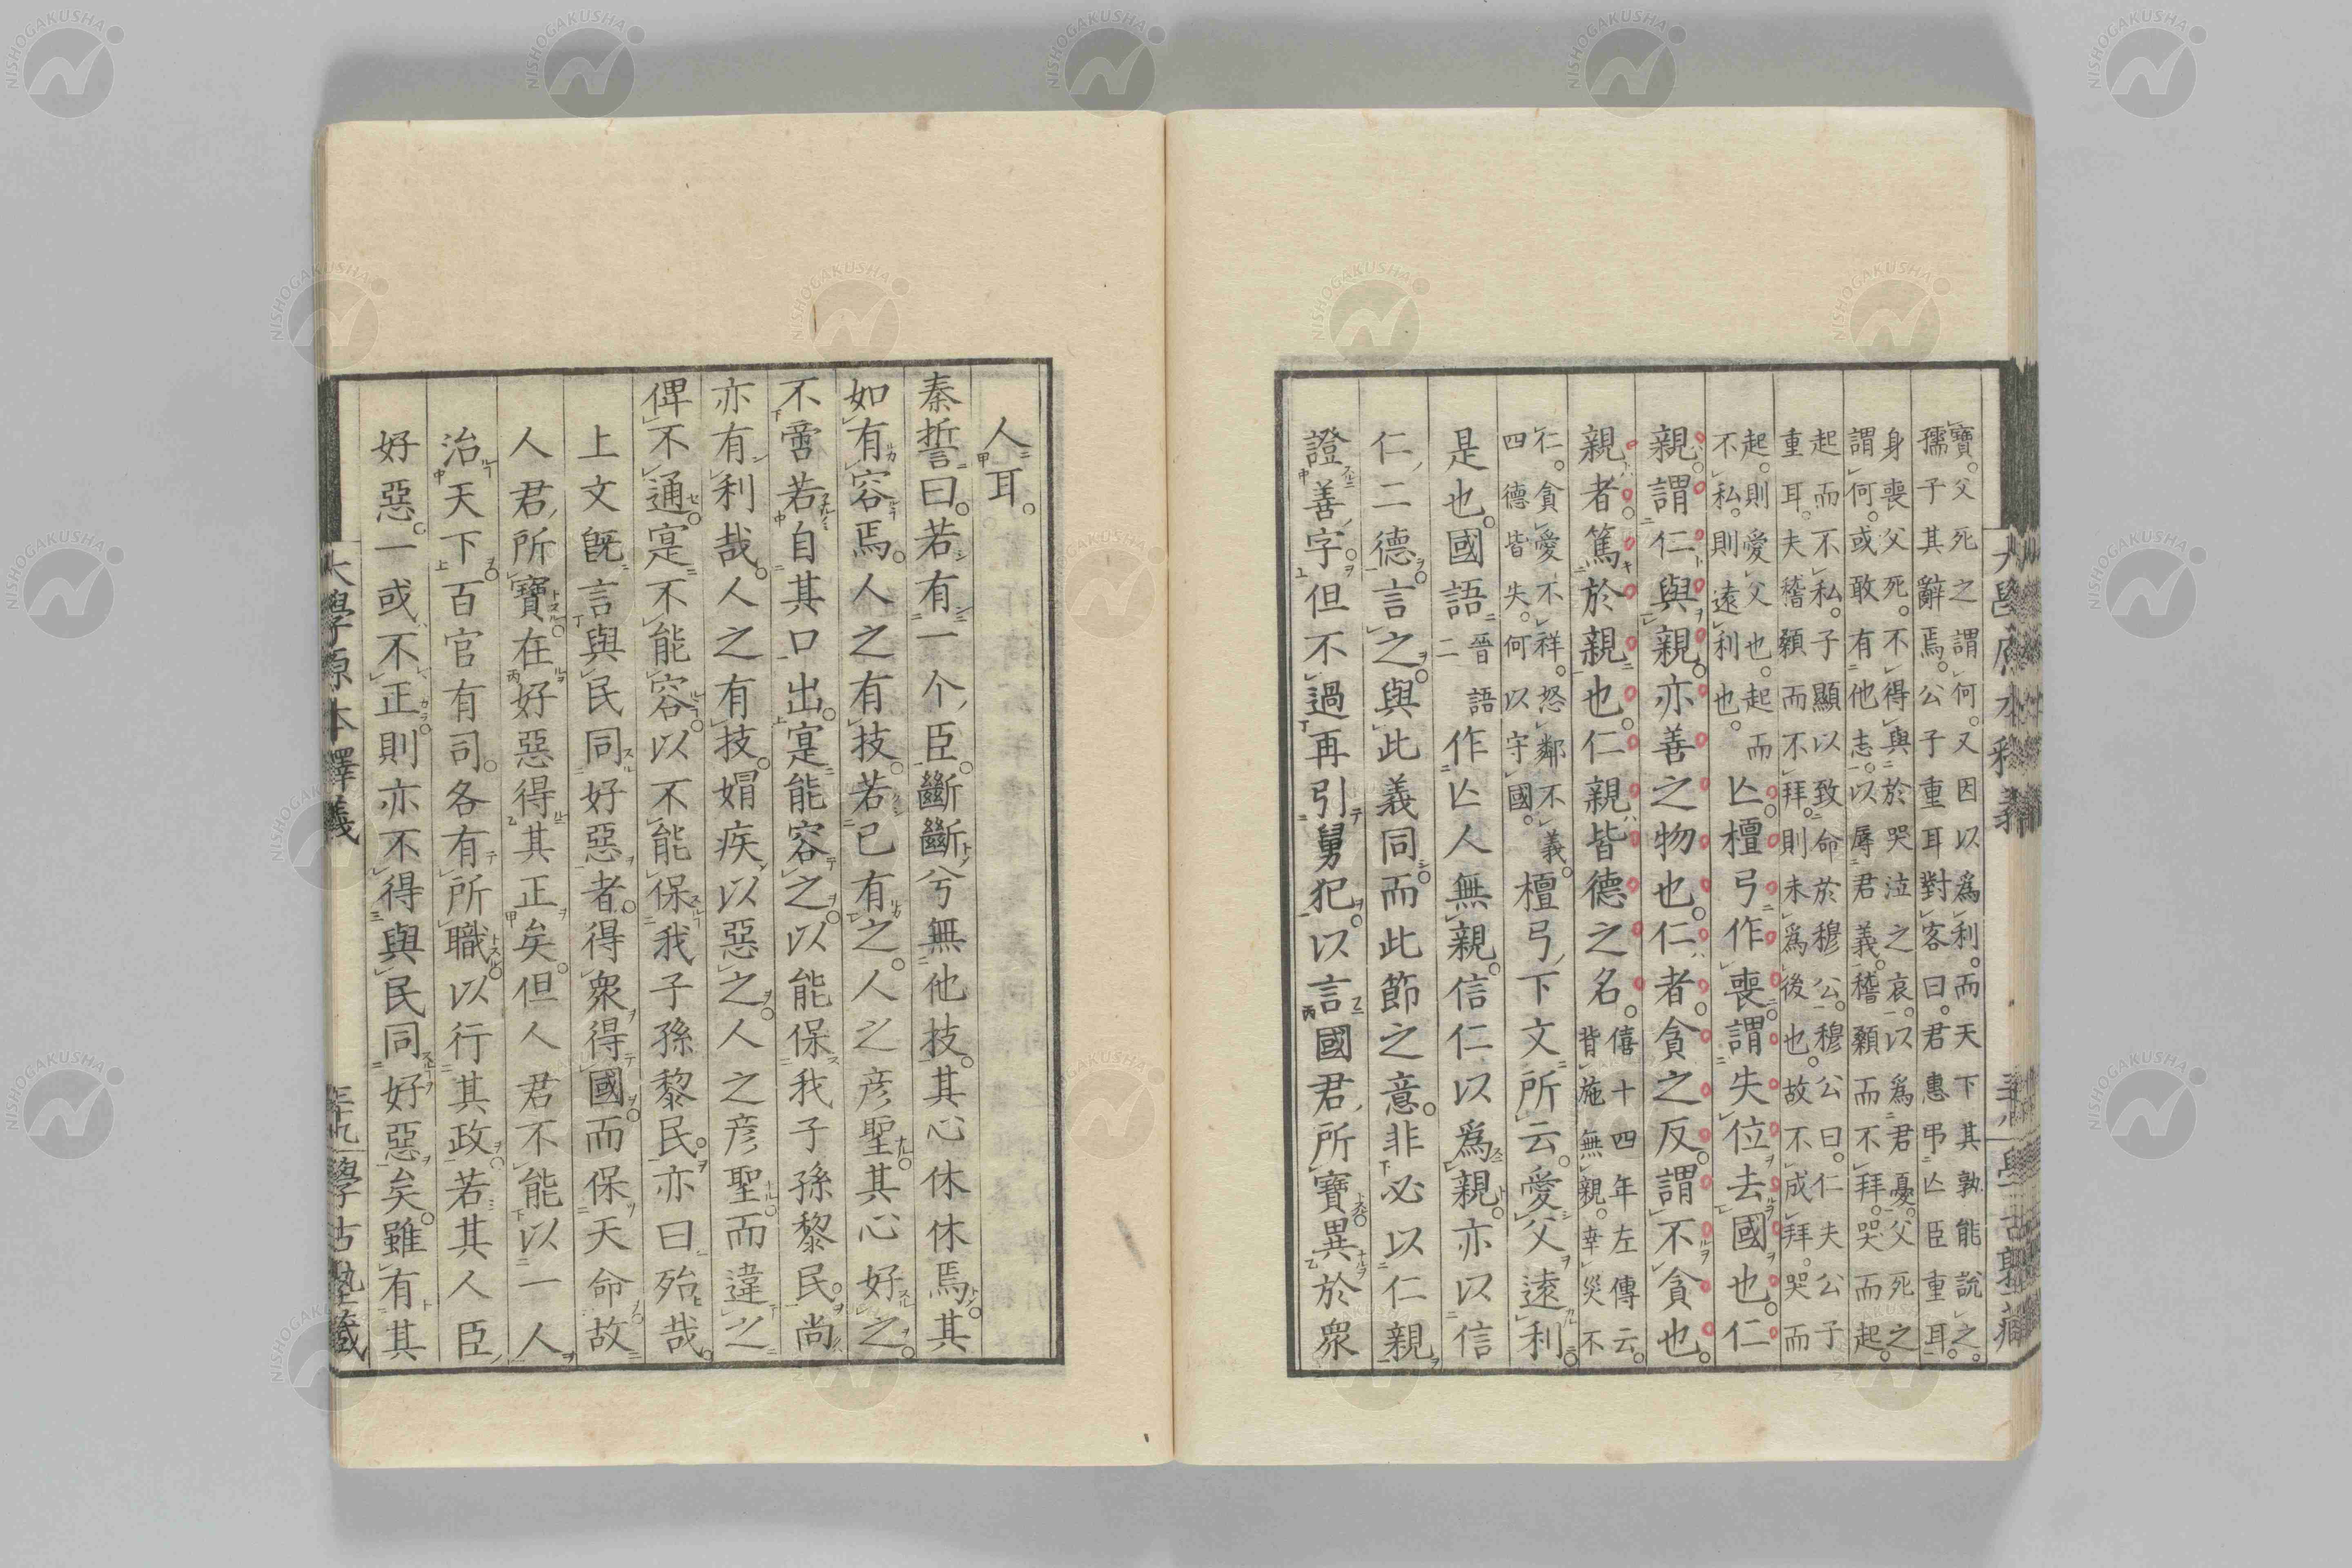 寶。父死之謂何。又因以爲利。而天下其孰能說之。
孺子其辭焉。公子重耳對客曰。君惠弔亾臣重耳。
身喪父死。不得與於哭泣之哀。以爲君憂。父死之
謂何。或敢有他志。以辱君義。稽顙而不拜。哭而起。
起而不私。子顯以致命於穆公。穆公曰。仁夫公子
重耳。夫稽顙而不拜。則未爲後也。故不成拜。哭而
起。則愛父也。起而
不私。則遠利也。
亾。檀弓作喪。謂失位去國也。仁
親謂仁與親。亦善之物也。仁者。貪之反。謂不貪也。
親者。篤於親也。仁親皆德之名。
僖十四年左傳云。
背施無親。幸災不
仁。貪愛不祥。怒鄰不義。
四德皆失。何以守國。
檀弓下文。所云。愛父遠利。
是也。國語晉語二作亾人無親。信仁以爲親。亦以信
仁二德。言之。與此義同。而此節之意。非必以仁親
證善字。但不過再引舅犯。以言國君所寶。異於衆
人耳。
秦誓曰。若有一个臣。斷斷兮無他技。其心休休焉。其
如有容焉。人之有技。若已有之。人之彥聖。其心好之。
不啻若自其口出。寔能容之。以能保我子孫黎民。尚
亦有利哉。人之有技。媢疾以惡之。人之彥聖。而違之
俾不通。寔不能容。以不能保我子孫黎民。亦曰殆哉。
上文旣言與民同好惡者。得衆得國。而保天命。故
人君所寶。在好惡得其正矣。但人君不能以一人
治天下。百官有司。各有所職。以行其政。若其人臣
好惡。一或不正。則亦不得與民同好惡矣。雖有其
大學原本釋義
學古塾藏